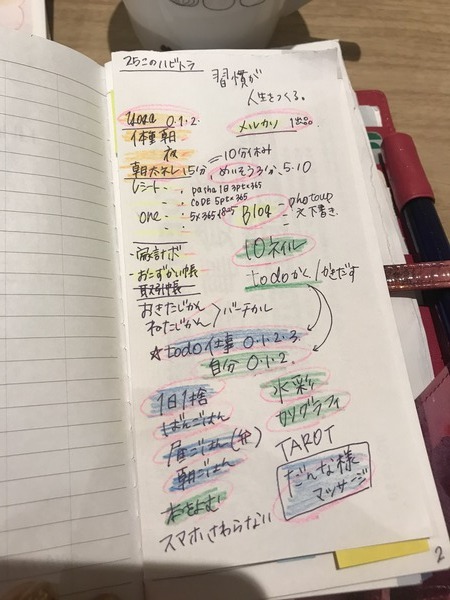 25このハビトラ
習慣が
人生をつくる。
YOGA 0.1.2.
メルカリ 1出品
体重 朝
夜
=10分休み
朝エネし 15分, めいそう5分, 5:10
レシート , pasha 1日3pt×365
CODE 5pt×365
one
Blog - photoup
- 下書き
家計ボ
10ネイル
おこずかい帳
取引帳
todoかく/かきだす
おきたじかん
ねたじかん > バーチカル
☆todo 仕事 0.1.2.3.
自分 0.1.2.
1日1捨
水彩
ばんごはん
カリグラフィ
昼ごはん(弁)
TAROT
朝ごはん
だんな様
マッサージ
本をよむ
スマホ、さわらない
2